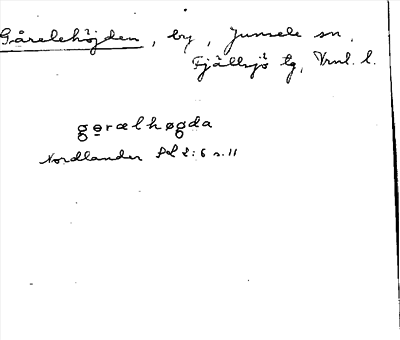 Gårelehöjden, by, Junsele sn,
Fjällsjö tg, Vrnl. l.
gørælhøgda
Nordlander Sol 2:6 s. 11